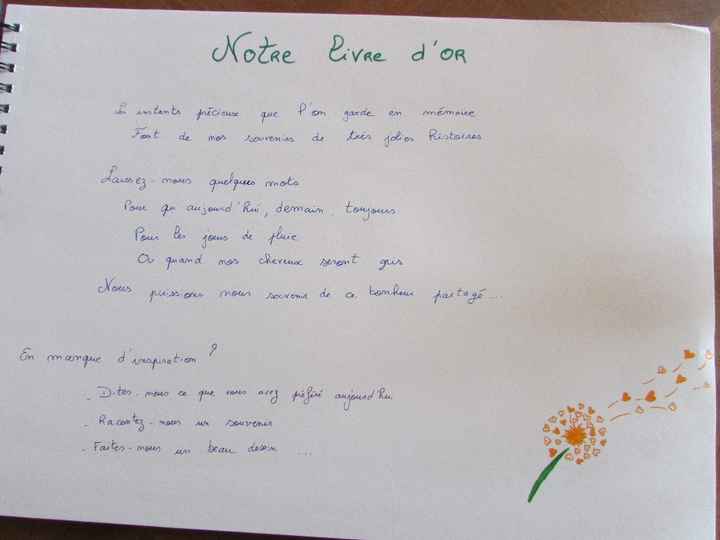 Notre Livre d'or
Ls instants précieux que l'on garde en mémoire
Font de nos souvenirs de très jolies histoires
Laissez-nous quelques mots
Pour qu aujourd'hui, demain, toujours
Pour les jours de pluie
Ou quand nos cheveux seront gris
Nous puissions nous souvenir de ce bonheur partagé...
En manque d'inspiration ?
- Dites-nous ce que vous avez préféré aujourd'hui
- Racontez-nous un souvenir
- Faites-nous un beau dessin ...